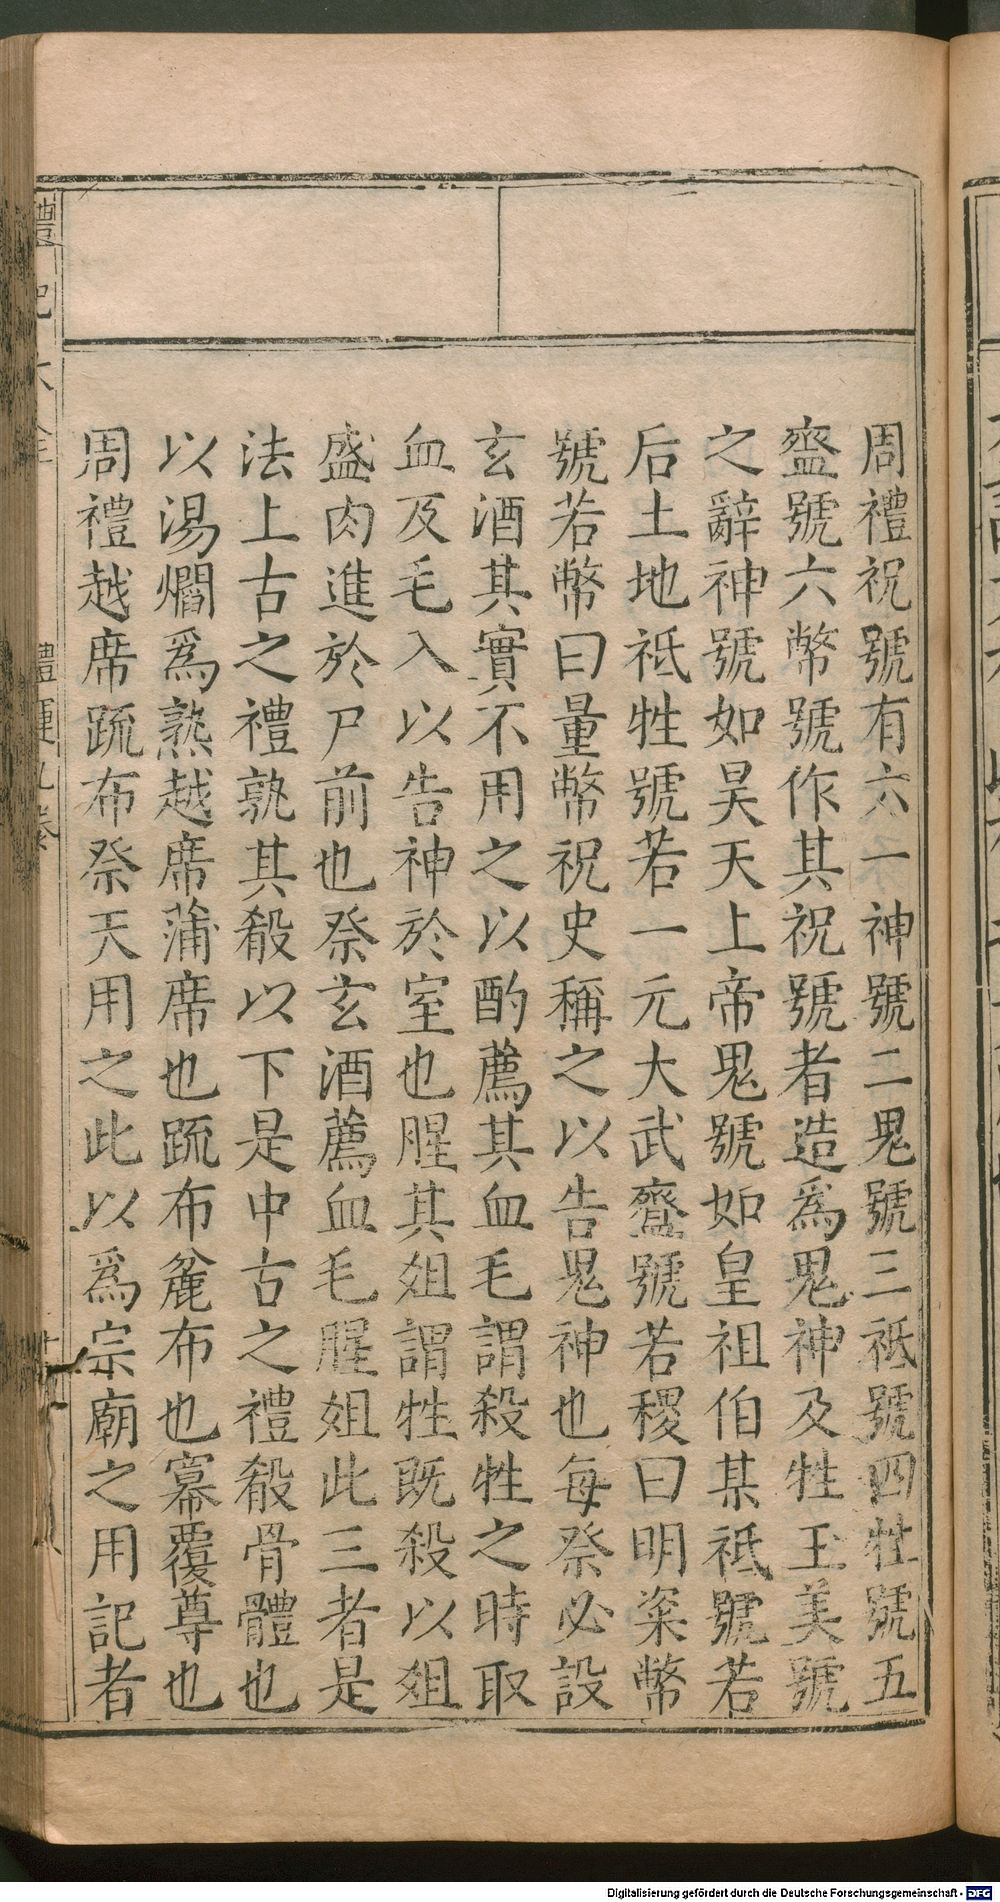 周禮祝號有六一神號二鬼號三祗號四牲號五
齍號六幣號作其祝號者造爲鬼神及牲玉美號
之辭神號如昊天上帝鬼號如皇祖伯某祗號若
后土地祗牲號若一元大武齍號若稷曰明粢幣
號若幣曰量幣祝史稱之以告鬼神也每祭必設
玄酒其實不用之以酌薦其血毛謂殺牲之時取
血及毛入以告神於室也腥其俎謂牲既殺以俎
盛肉進於尸前也祭玄酒薦血毛腥俎此三者是
法上古之禮孰其殽以下是中古之禮殽骨體也
以湯爓爲熟越席蒲席也疏布麄布也冪覆尊也
周禮越席疏布祭天用之此以爲宗廟之用記者
禮記大全
禮運九卷
Digitalisierung gefördert durch die Deutsche Forschungsgemeinschaft - DFG